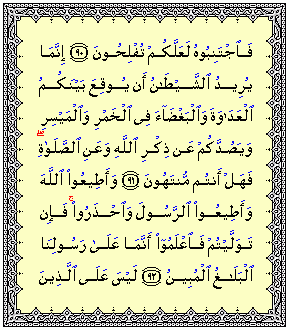 فَٱجْتَنِبُوهُ لَعَلَّكُمْ تُفْلِحُونَ ﴿٩٠﴾ إِنَّمَا
يُرِيدُ ٱلشَّيْطَٰنُ أَن يُوقِعَ بَيْنَكُمُ
ٱلْعَدَٰوَةَ وَٱلْبَغْضَآءَ فِى ٱلْخَمْرِ وَٱلْمَيْسِرِ
وَيَصُدَّكُمْ عَن ذِكْرِ ٱللَّهِ وَعَنِ ٱلصَّلَوٰةِ ۖ
فَهَلْ أَنتُم مُّنتَهُونَ ﴿٩١﴾ وَأَطِيعُوا۟ ٱللَّهَ
وَأَطِيعُوا۟ ٱلرَّسُولَ وَٱحْذَرُوا۟ ۚ فَإِن
تَوَلَّيْتُمْ فَٱعْلَمُوٓا۟ أَنَّمَا عَلَىٰ رَسُولِنَا
ٱلْبَلَٰغُ ٱلْمُبِينُ ﴿٩٢﴾ لَيْسَ عَلَى ٱلَّذِينَ